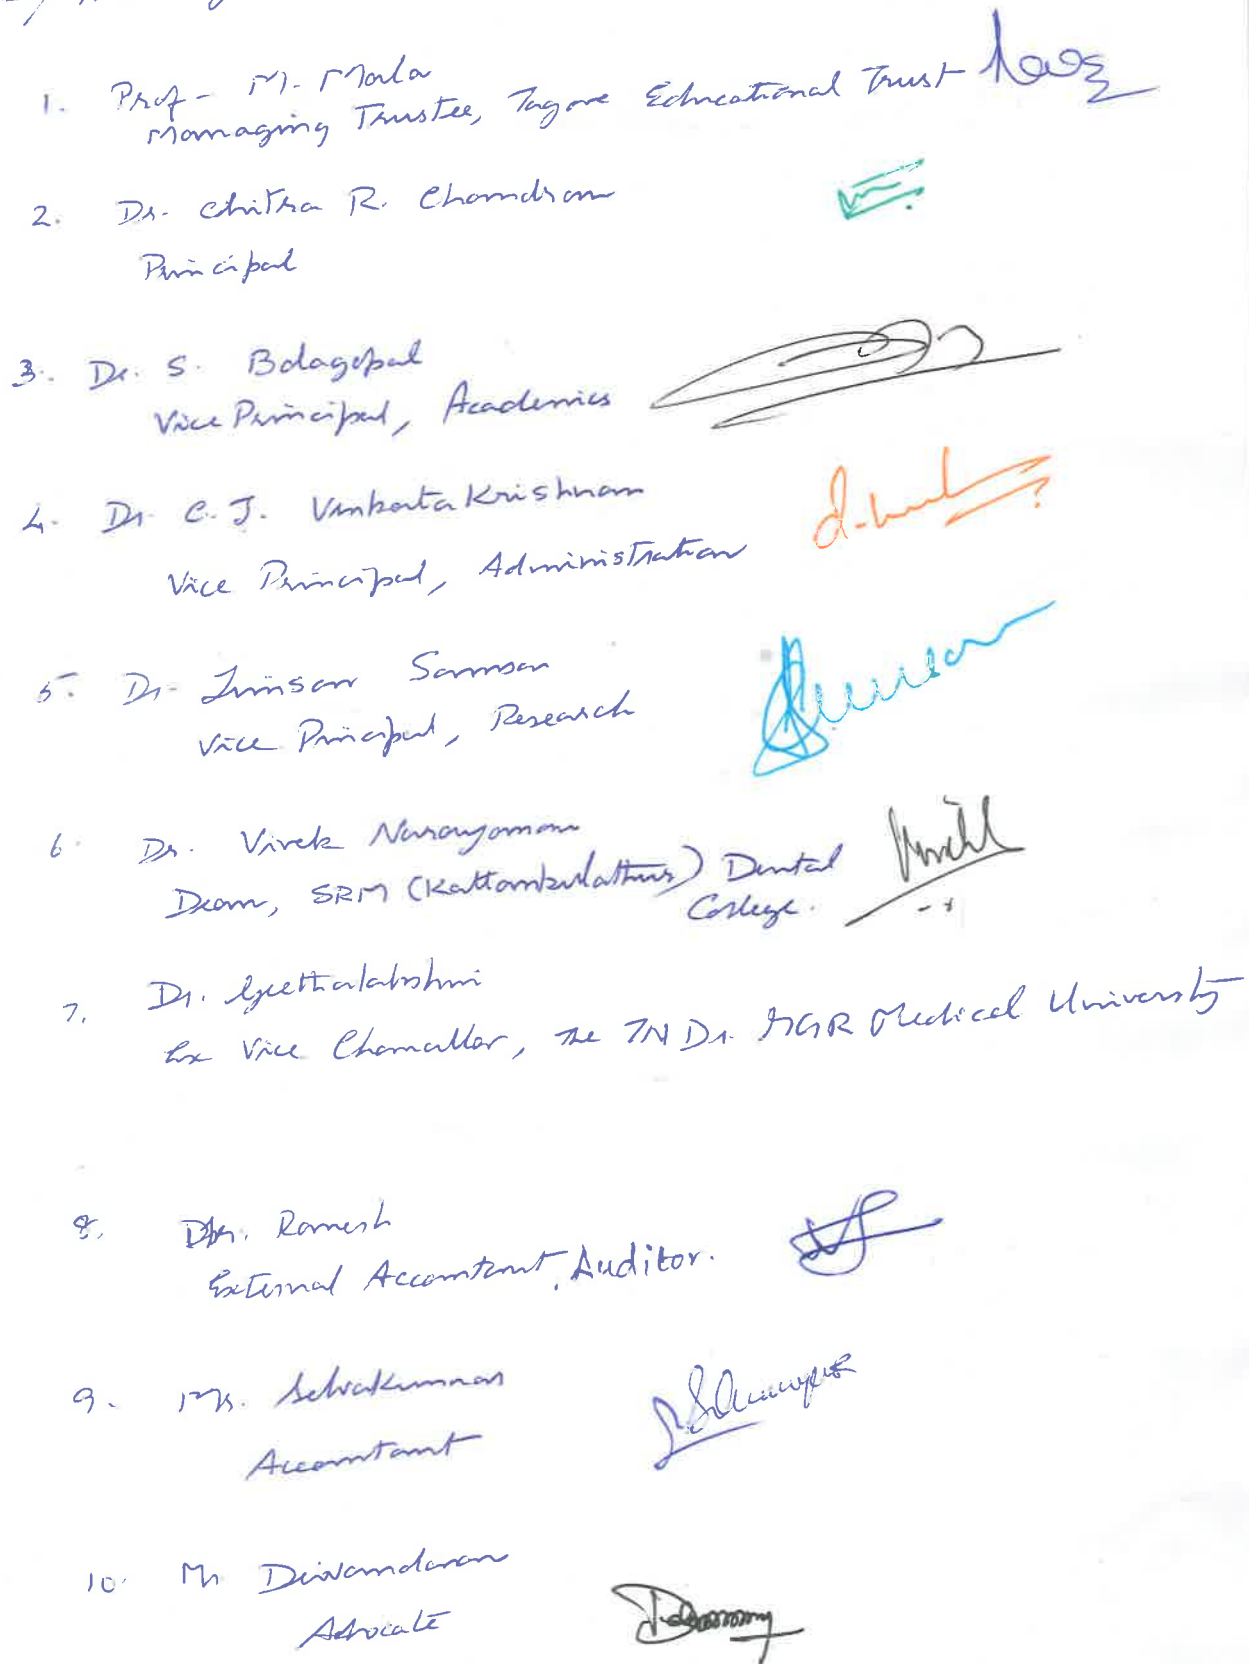 1. Prof- M. Mala
Managing Trustee, Tagore Educational Trust
2. Dr. Chitra R. Chandran
Principal
3. Dr. S. Balagopal
Vice Principal, Academics
4. Dr C.J. Venkata Krishnan
Vice Principal, Administration
5. Dr- Jimson Samson
Vice Principal, Research
6. Dr. Vivek Narayanan
Dean, SRM (Kattankulathur) Dental
College.
7. Dr. Geethalakshmi
Ex Vice Chancellor, The TN Dr. MGR Medical University
8. Ramesh
External Accountant, Auditor.
9. Mr. Selvakumaar
Accountant
10. Mr Diwandaran
Advocate